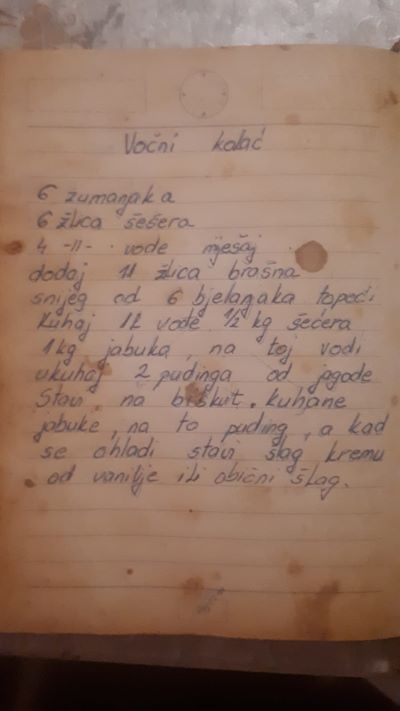 Voćni kolać
6 žumanjaka
6 žlica šešera
4 -11- vode mješaj
dodaj 11 žlica brašna
snijeg od 6 bjelanjaka topeći
Kuhaj 1l vode 1/2 kg šećera
1kg jabuka, na toj vodi
ukuhaj 2 pudinga od jagode
Stavi na biskvit. kuhane
jabuke, na to puding, a kad
se ohladi stavi šlag kremu
od vanilije ili obični šlag.